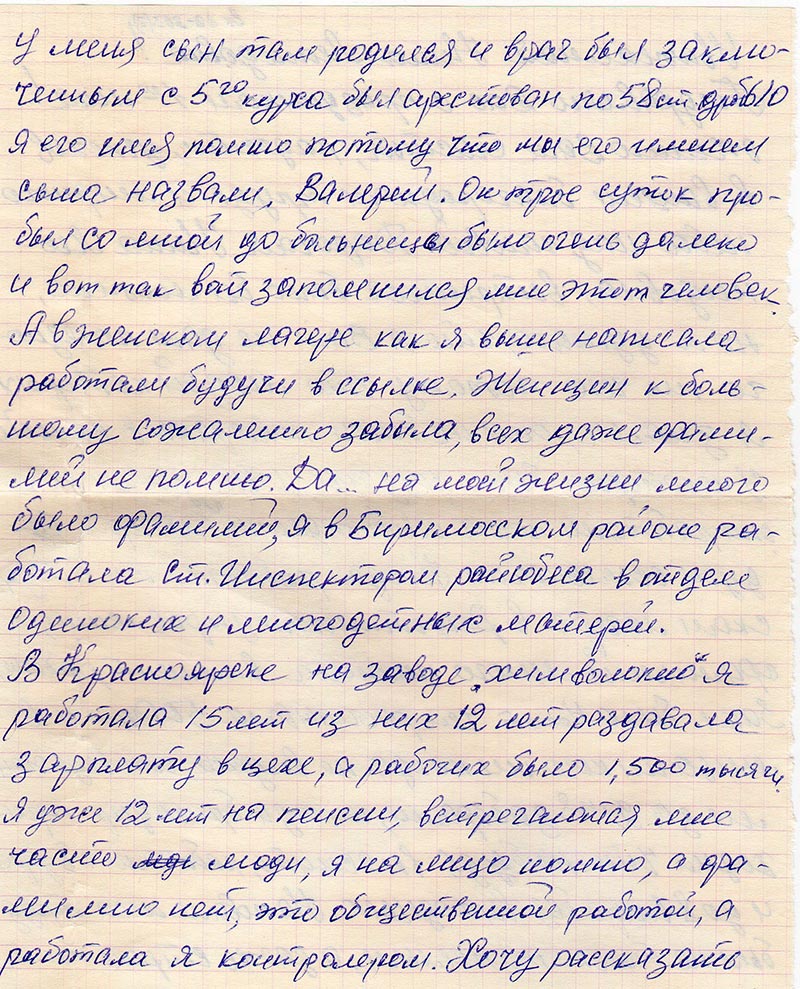 У меня сын там родился и врач был заклю-
ченным с 5го курса был арестован по 58 ст. дробь 10
Я его имя помню потому что мы его именем
сына назвали, Валерий. Он трое суток про-
был со мной до больницы было очень далеко
и вот так вот запомнился мне этот человек.
А в женском лагере как я выше написала
работали будучи в ссылке. Женщин к боль-
шому сожалению забыла, всех даже фами-
лий не помню. Да... на моей жизни много
было фамилий, я в Бирилюсском районе ра-
ботала ст. Инспектором райсобеса в отделе
одиноких и многодетных матерей.
В Красноярске на заводе „химволокно" я
работала 15 лет из них 12 лет раздавала
зарплату в цехе, а рабочих было 1,500 тысячи.
Я уже 12 лет на пенсии, встречаются мне
часто люди, я на лицо помню, а фа-
милию нет, это общественной работой, а
работала я контролером. Хочу рассказать